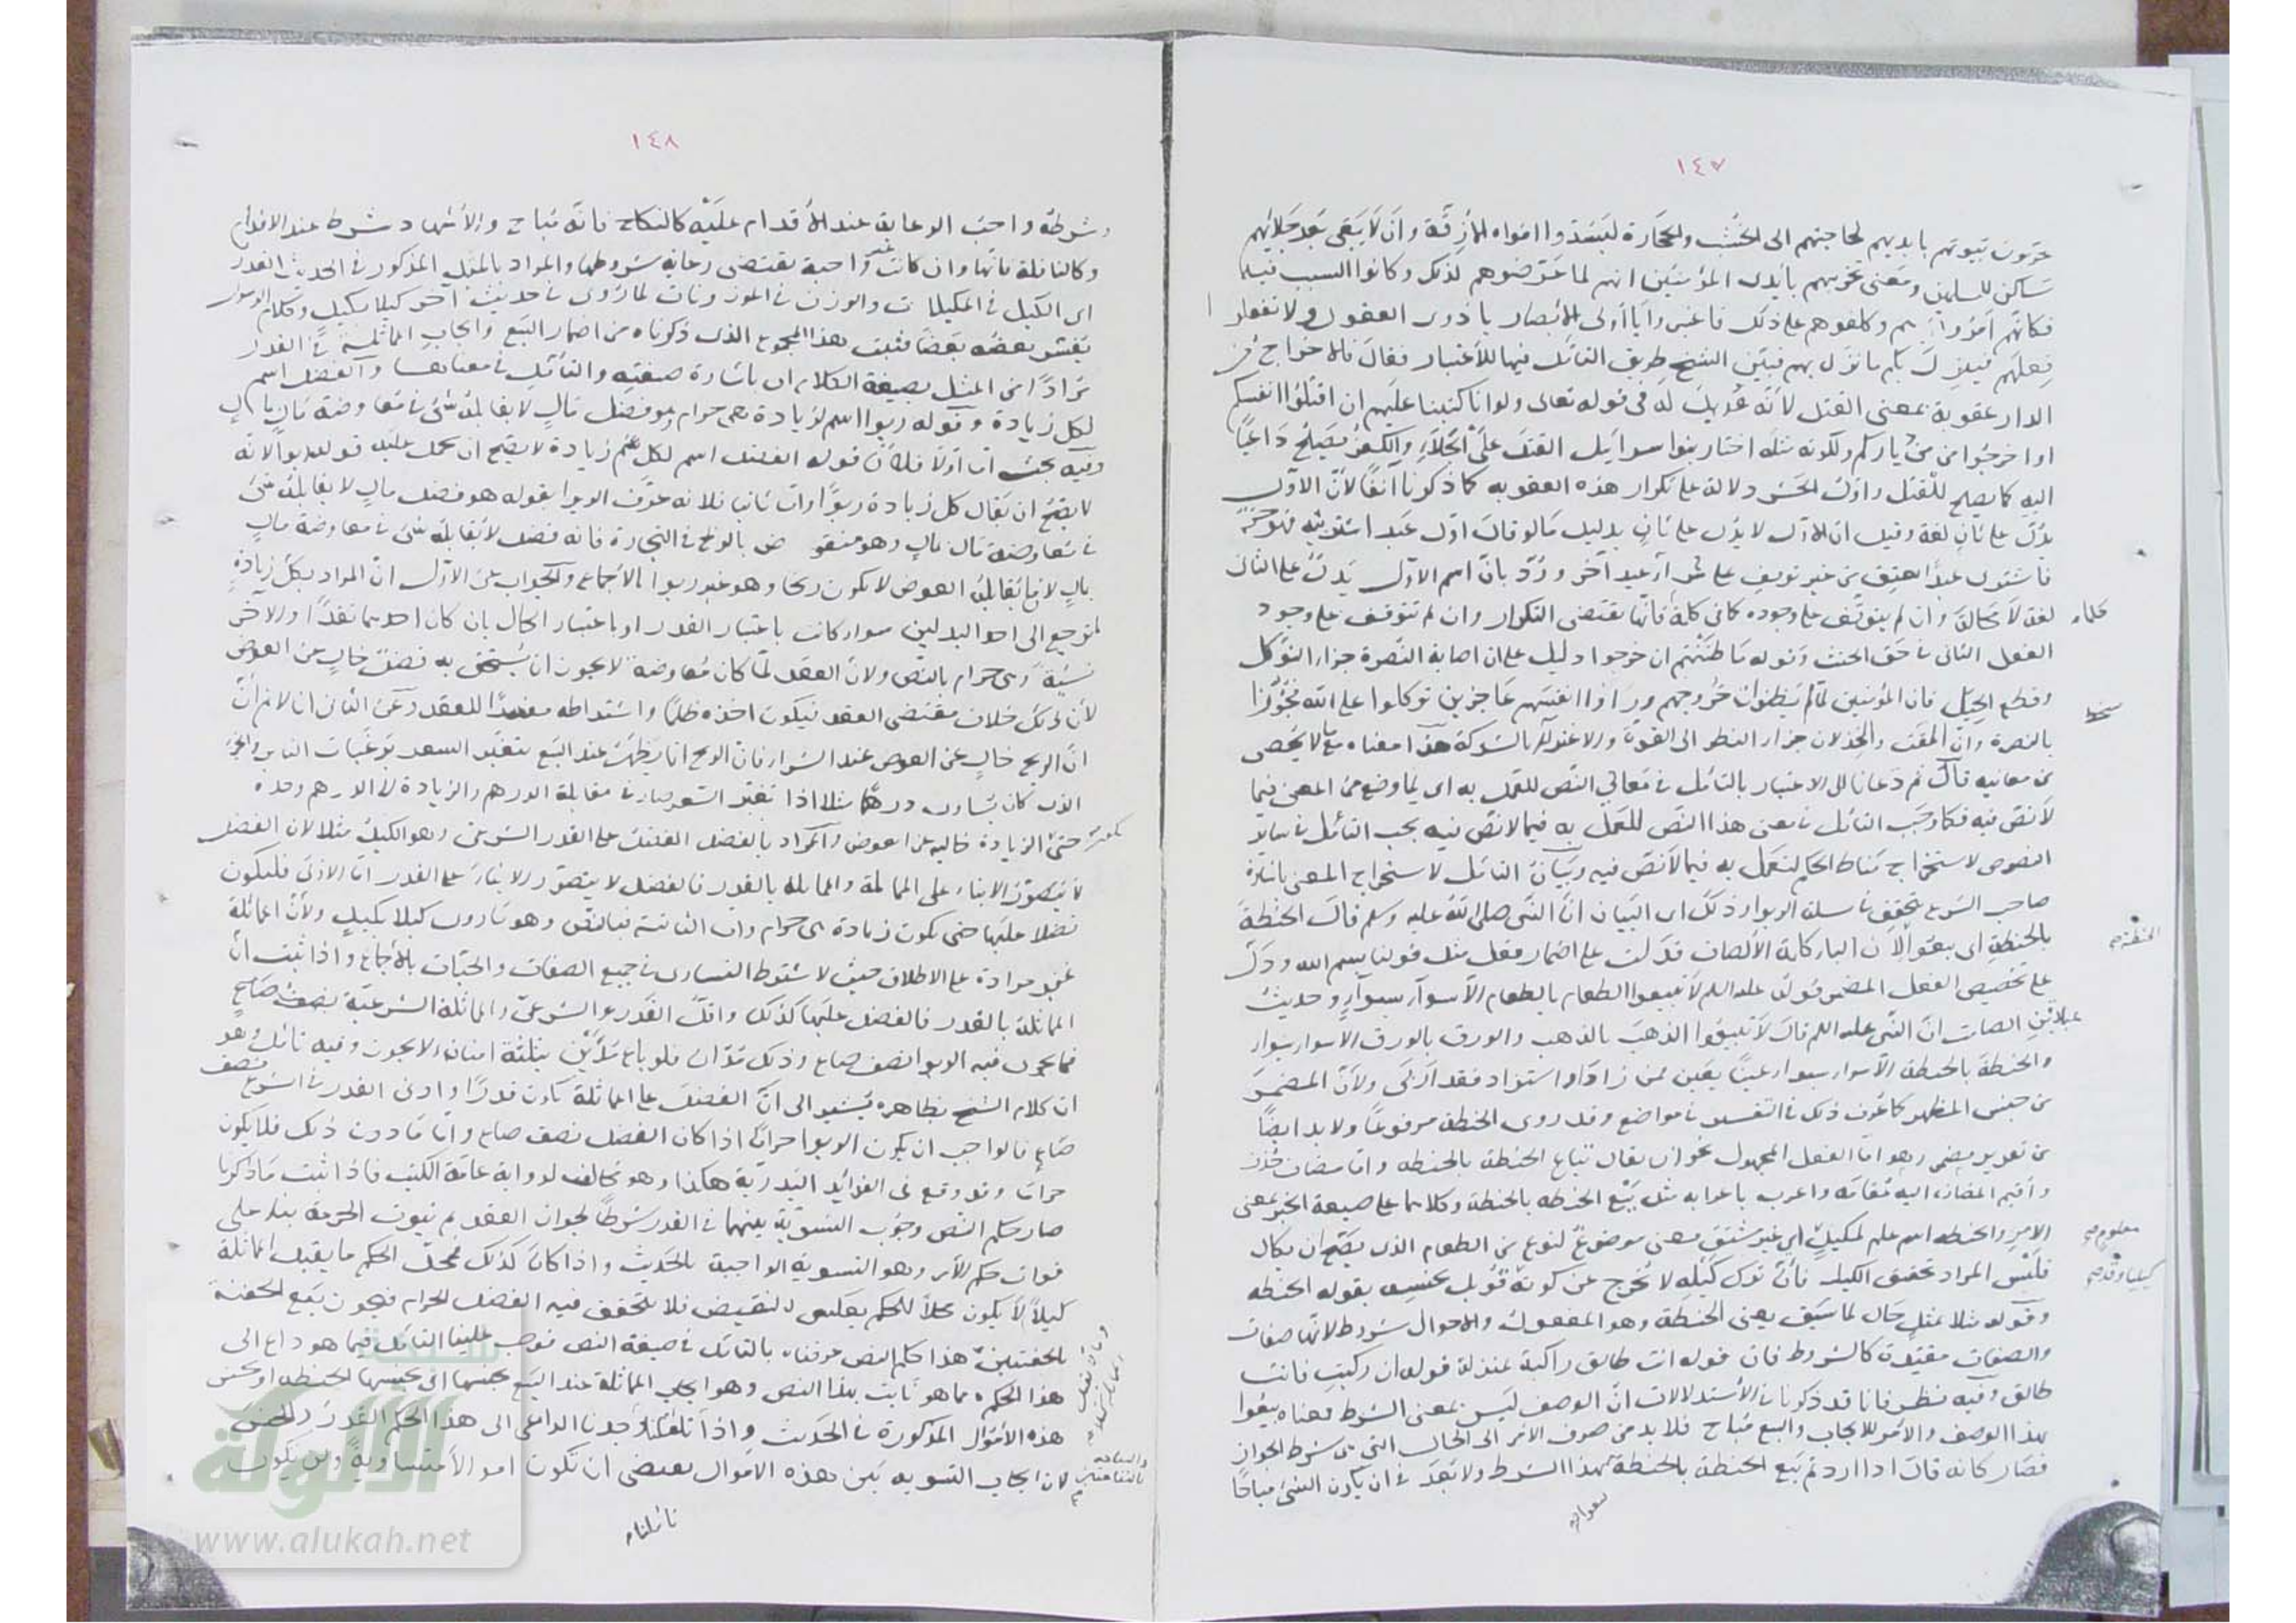 ١٤٧
يخربون بيوتهم بايديهم لحاجتهم الى الخشب والحجارة ليسدوا افواه الازقة وان لا يبقى بعد جلائهم
مساكن للمسلمين ومعنى تخريبهم بايدى المؤمنين انهم لما عرضوهم لذلك وكانوا السبب فيه
فكانهم امروا بهم وكلفوهم على ذلك فاعتبروا يا أولى الأبصار يا ذوى العقول ولا تفعلوا
فعلهم فينزل بكم ما نزل بهم فبين الشيخ طريق التأمل فيها للاعتبار فقال فالاخراج من
الدار عقوبة بمعنى القتل لأنه عديل له فى قوله تعالى ولو انا كتبنا عليهم ان اقتلوا انفسكم
او اخرجوا من دياركم ولكونه مثله اختار بنوا سرايل القتل على الجلاء والكفر يصلح داعيا
اليه كما يصلح للقتل واول الحشر دلالة على تكرار هذه العقوبة كما ذكرنا آنفا لأن الاول
يدل على ثان لغة وقيل ان الاول لا يدل على ثان بدليل ما لو قال اول عبد اشتريته فهو حر
فاشترى عبدا يعتق من غير توقف على شراء عبد آخر ورد بان اسم الاول يدل على الثانى
لغة لا محالة وان لم يتوقف على وجوده كما فى كلما فانها تقتضى التكرار وان لم تتوقف على وجود
الفعل الثانى فى حق الحنث وقوله ما ظننتم ان يخرجوا دليل على ان اصابة النصرة جزاء التوكل
وقطع الحيل فان المؤمنين لما لم يظنوا خروجهم وراوا انفسهم عاجزين توكلوا على الله فجوزوا
بالنصرة وان المقت والخذلان جزاء النظر الى القوة والاعتداد بالشوكة هذا معناه مما لا يحصى
من معانيه قال ثم دعانا الى الاعتبار بالتامل فى معانى النص للعمل به اى لما وضع من المعنى فيما
لا نص فيه فكما وجب التامل فى معنى هذا النص للعمل به فيما لا نص فيه يجب التامل فى سائر
النصوص لاستخراج مناط الحكم لنعمل به فيما لا نص فيه وبيان التامل لاستخراج المعنى باشارة
صاحب الشرع يتحقق فى مسئلة الربوا وذلك اى البيان ان النبى صلى الله عليه وسلم قال الحنطة
بالحنطة اى بيعوا لأن الباء كلمة الالصاق فدلت على اضمار فعل مثل قولنا بسم الله ودل
على تخصيص الفعل المضمر قوله عليه السلم لا تبيعوا الطعام بالطعام الا سواء بسواء وحديث
عبادة بن الصامت ان النبى عليه السلم قال لا تبيعوا الذهب بالذهب والورق بالورق الا سواء بسواء
والحنطة بالحنطة الا سواء بسواء عينا بعين فمن زاد او استزاد فقد اربى ولأن المضمر
من جنس المظهر كما عرف ذلك فى التفسير فى مواضع وقد روى الحنطة مرفوعا ولا بد ايضا
من تقدير مضمر وهو اما الفعل المجهول نحو ان يقال تباع الحنطة بالحنطة واما مضاف حذف
واقيم المضاف اليه مقامه واعرب باعرابه مثل بيع الحنطة بالحنطة وكلاهما على صيغة الخبر بمعنى
الامر والحنطة اسم علم لمكيل اى غير مشتق معنى موضوع لنوع من الطعام الذى يصح ان يكال
فليس المراد تحقيق الكيل فان ترك كيله لا يخرج عن كونه قوبل بجنسه بقوله الحنطة
وقوله مثلا بمثل حال لما سبق يعنى الحنطة وهو المفعول والاحوال شروط لانها صفات
والصفات مقيدة كالشروط فان قوله انت طالق راكبة بمنزلة قوله ان ركبت فانت
طالق وفيه نظر فانا قد ذكرنا فى الاستدلالات ان الوصف ليس بمعنى الشرط ومعناه بيعوا
بهذا الوصف والامر للايجاب والبيع مباح فلا بد من صرف الامر الى الحال التى هى شرط الجواز
فصار كانه قال اذا اردتم بيع الحنطة بالحنطة فبهذا الشرط ولا بعد فى ان يكون الشئ مباحا
١٤٨
وشرطه واجب الرعاية عند الاقدام عليه كالنكاح فانه مباح والاشهاد شرط عند الاقدام
وكالنافلة فانها وان كانت غير واجبة يقتضى رعاية شروطها والمراد بالمثل المذكور فى الحديث القدر
اى الكيل فى المكيلات والوزن فى الموزونات لما روى فى حديث آخر كيلا بكيل وكلام الرسول
يفسر بعضه بعضا فثبت بهذا المجموع الذى ذكرناه من اضمار البيع وايجاب المماثلة فى القدر
مرادا من المثل بصيغة الكلام اى باشارة صيغته والتامل فى معناها والفضل اسم
لكل زيادة وقوله ربوا اسم لزيادة هى حرام وهو فضل مال لا يقابله شئ فى معاوضة مال بمال
وفيه بحث اما اولا فلأن قوله الفضل اسم لكل زيادة لا يصح ان يحمل عليه قوله ربوا لانه
لا يصح ان يقال كل زيادة ربوا واما ثانيا فلانه عرف الربوا بقوله هو فضل مال لا يقابله شئ
فى معاوضة مال بمال وهو منقوض بالربح فى التجارة فانه فضل لا يقابله شئ فى معاوضة مال
بمال لان ما يقابله العوض لا يكون ربحا وهو غير ربوا بالاجماع والجواب عن الاول ان المراد بكل زيادة
ترجع الى احد البدلين سواء كانت باعتبار القدر او باعتبار الحال بان كان احدهما نقدا والاخر
نسيئة وهى حرام بالنص ولان العقد لما كان معاوضة لا يجوز ان يستحق به فضل خال عن العوض
لأن ذلك خلاف مقتضى العقد فيكون اخذه ظلما واشتراطه مفسدا للعقد وعن الثانى انا لا نم أن
ان الربح خال عن العوض عند الشراء فان الربح انما يظهر عند البيع بتغير السعر برغبات الناس
الذى كان يساوى درهما مثلا اذا تغير السعر صار فى مقابلة الدرهم والزيادة لا الدرهم وحده
حتى الزيادة خالية عن العوض والمراد بالفضل الفضل على القدر الشرعى وهو الكيل مثلا لان الفضل
لا يتصور الا بناء على المماثلة والمماثلة بالقدر فالفضل لا يتصور الا بناء على القدر اما الاولى فليكون
فضلا عليها حتى يكون زيادة هى حرام واما الثانية فبالنص وهو ما روى كيلا بكيل ولأن المماثلة
غير مرادة على الاطلاق حيث لا يشترط التساوى فى جميع الصفات والحبات بالاجماع واذا ثبت ان
المماثلة بالقدر فالفضل عليها كذلك واقل القدر الشرعى والمماثلة الشرعية نصف صاع
فما يجرى فيه الربوا نصف صاع وذلك مدان فلو باع مدين بثلثة امنان لا يجوز وفيه تامل وهو
ان كلام الشيخ بظاهره يشير الى ان الفضل على المماثلة يكون قدرا وادنى القدر فى الشرع نصف
صاع فالواجب ان يكون الربوا حراما اذا كان الفضل نصف صاع واما ما دون ذلك فلا يكون
حراما وقد وقع فى الفوائد البدرية هكذا وهو مخالف لرواية عامة الكتب فاذا ثبت ما ذكرنا
صار حكم النص وجوب التسوية بينهما فى القدر شرطا لجواز العقد ثم ثبوت الحرمة بناء على
فوات حكم الامر وهو التسوية الواجبة بالحديث واذا كان كذلك فمحل الحكم ما يقبل المماثلة
كيلا لا يكون محلا للحكم بعكس النقيض فلا يتحقق فيه الفضل الحرام فيجوز بيع الحفنة
بالحفنتين هذا حكم النص عرفناه بالتامل فى صيغة النص فوجب علينا التامل فيما هو داع الى
هذا الحكم مما هو ثابت بهذا النص وهو ايجاب المماثلة عند البيع بجنسها
هذه الأموال المذكورة فى الحديث واذا تاملنا وجدنا الداعى الى هذا الحكم القدر والجنس
لان ايجاب التسوية بين هذه الاموال يقتضى ان تكون اموالا متساوية ولن تكون
تاملناه
www.alukah.net